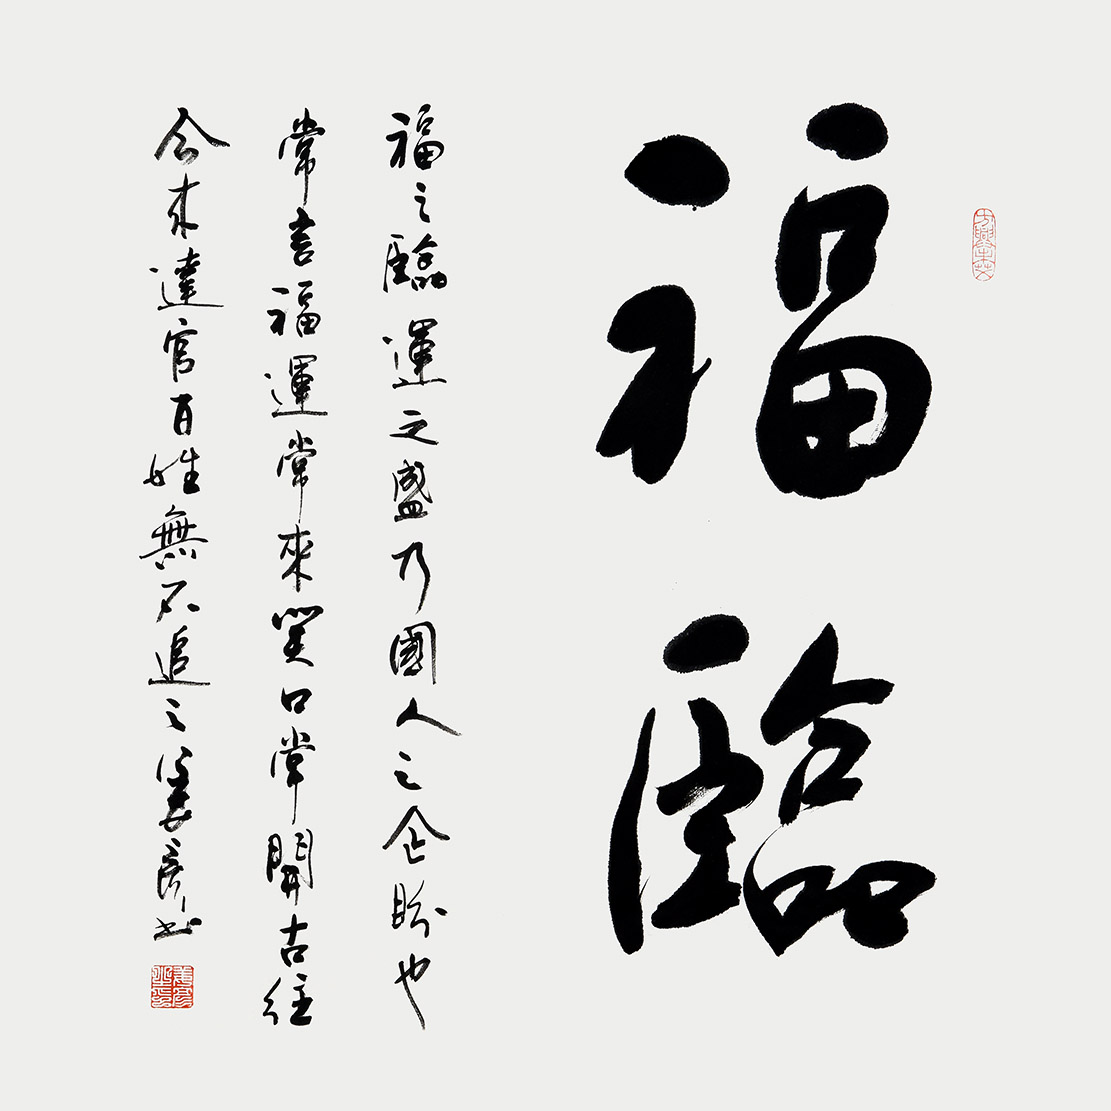 福臨
福之臨運之盛乃國人之企盼也
常言福運常來笑口常開古往
今來達官百姓無不追之